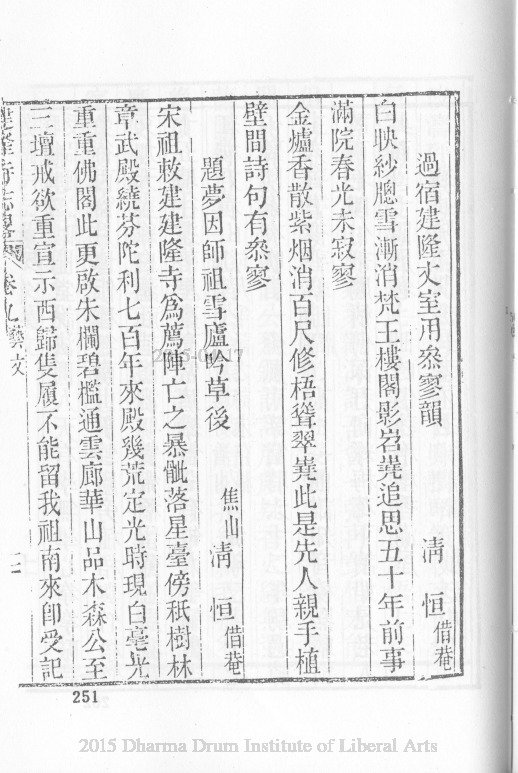 過宿建隆丈室用叅寥韻　清恒借菴
白映紗牕雪漸消梵王樓閣影岧嶤追思五十年前事
滿院春光未寂寥
金爐香散紫烟消百尺修梧聳翠嶤此是先人親手植
壁間詩句有叅寥
題夢因師祖雪廬吟草後　焦山清恒借菴
宋祖敕建建隆寺爲薦陣亡之暴骴落星臺傍秪樹林
章武殿繞芬陀利七百年來殿幾荒定光時現白毫光
重重佛閣此更啟朱欄碧檻通雲廊華山品木森公至
三壇戒欲重宣示西歸隻履不能留我祖南來卽受記
建隆寺志畧　卷九藝文
251
2015 Dharma Drum Institute of Liberal Arts